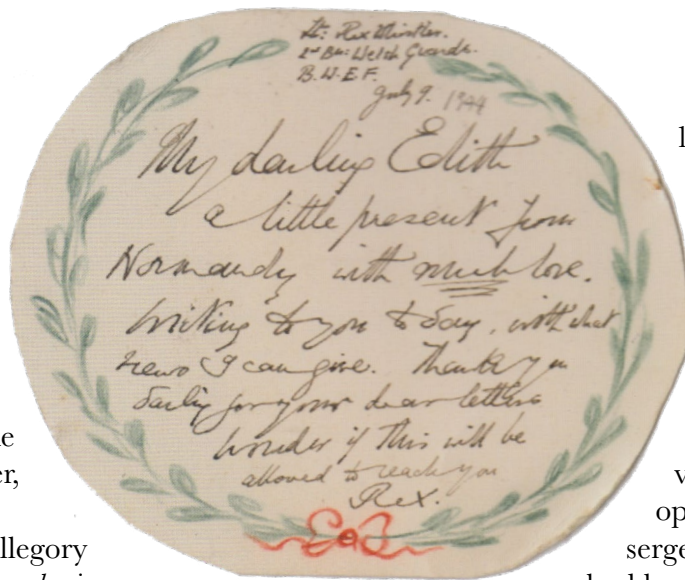 Lt: Rex Whistler.
1st Bn: Welsh Guards.
B.W.E.F.
July 9. 1944
My darling Edith
a little present from
Normandy with much love.
Writing to you to day, with what
news I can give. Thank you
darling for your dear letters
Wonder if this will be
allowed to reach you
Rex.
er,
llegory
l
v
op
serge